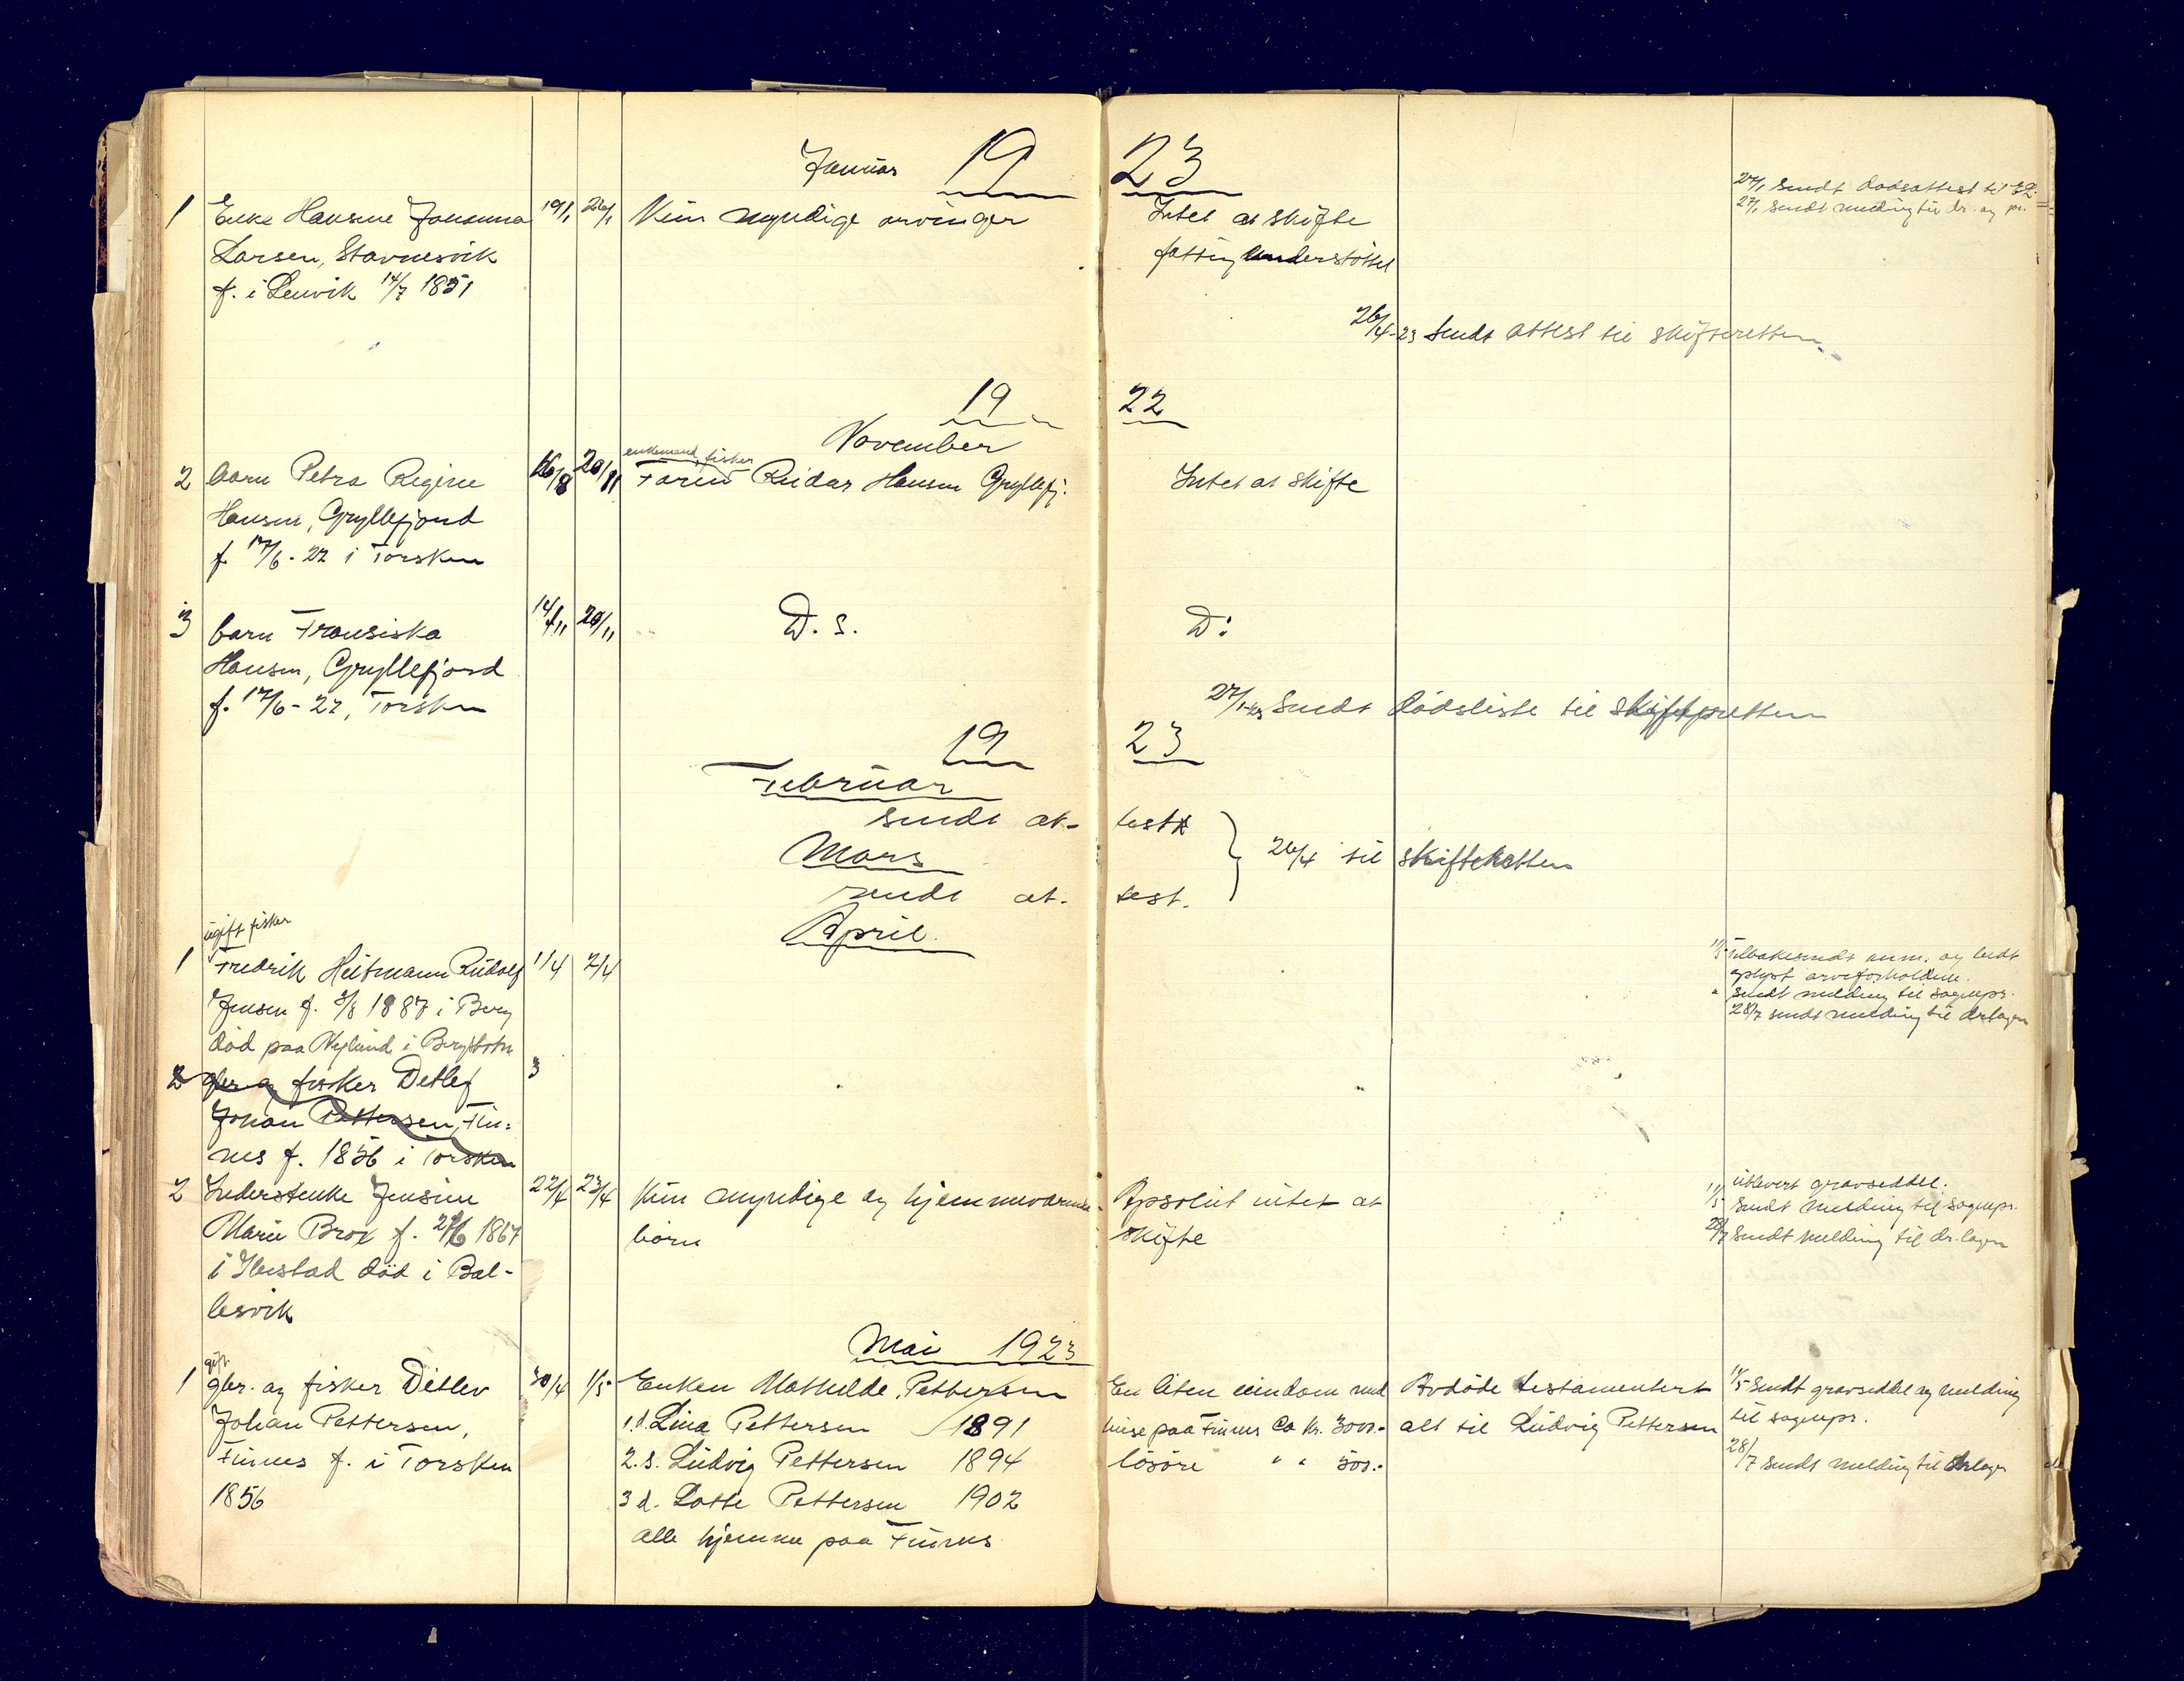 Januar 19 23
1 Enke Hansine Johanna 19/1 26/1 Kun myndige arvinger Intet at skifte
Larsen, Stavnesvik fattigunderstöttet
f. i Lenvik 14/7 1851
27/1 sendt dødsattest til
27/1 sendt melding til dr. og pr.
26/4-23 Sendt attest til skifteretten
19 22
November
enkemand, fisker
2 barn Petra Regine 16/8 20/11 Faren Reidar Hansen Gryllefj. Intet at skifte
Hansen, Gryllefjord
f. 17/6-22 i Torsken
3 barn Fransiska 14/11 20/11 D. s. D:
Hansen, Gryllefjord
f. 17/6-22, Torsken
27/1-23 Sendt dödsliste til skifteretten
19 23
Februar
sendt at- test
Mars } 26/4 til skifteretten
sendt at- test.
April.
ugift fisker
1 Fredrik Heitmann Rudolf 1/4 2/4
Jensen f. 3/8 1887 i Berg
död paa Nylund i Bergsbotn
Tilbakesendt anm. og bedt
oplyst arveforholdene.
" sendt melding til sognepr.
28/7 sendt melding til dr.lagen
2 gbr. og fisker Detlef 3
Johan Pettersen, Fin-
nes f. 1856 i Torsken
2 Inderstenke Jensine 22/4 23/4 Kun myndige og hjemmeværende Apsolut intet at
Marie Brox f. 27/6 1867 börn skifte
i Ibestad död i Bal-
lesvik
utlevert gravseddel.
11/5 Sendt melding til sognepr.
28/7 Sendt melding til dr.lagen
Mai 1923
gift
1 gbr. og fisker Ditlev 30/4 1/5 Enken Mathilde Pettersen En liten eiendom med Avdöde testamentert
Johan Pettersen, 1. d. Lina Pettersen 1891 huse paa Finnes ca kr. 3000.- alt til Ludvig Pettersen
Finnes f. i Torsken 2. s. Ludvig Pettersen 1894 lösöre " " 500.-
1856 3 d. Lotte Pettersen 1902
alle hjemme paa Finnes
11/5 Sendt gravseddel og melding
til sognepr.
28/7 sendt melding til dr.lagen